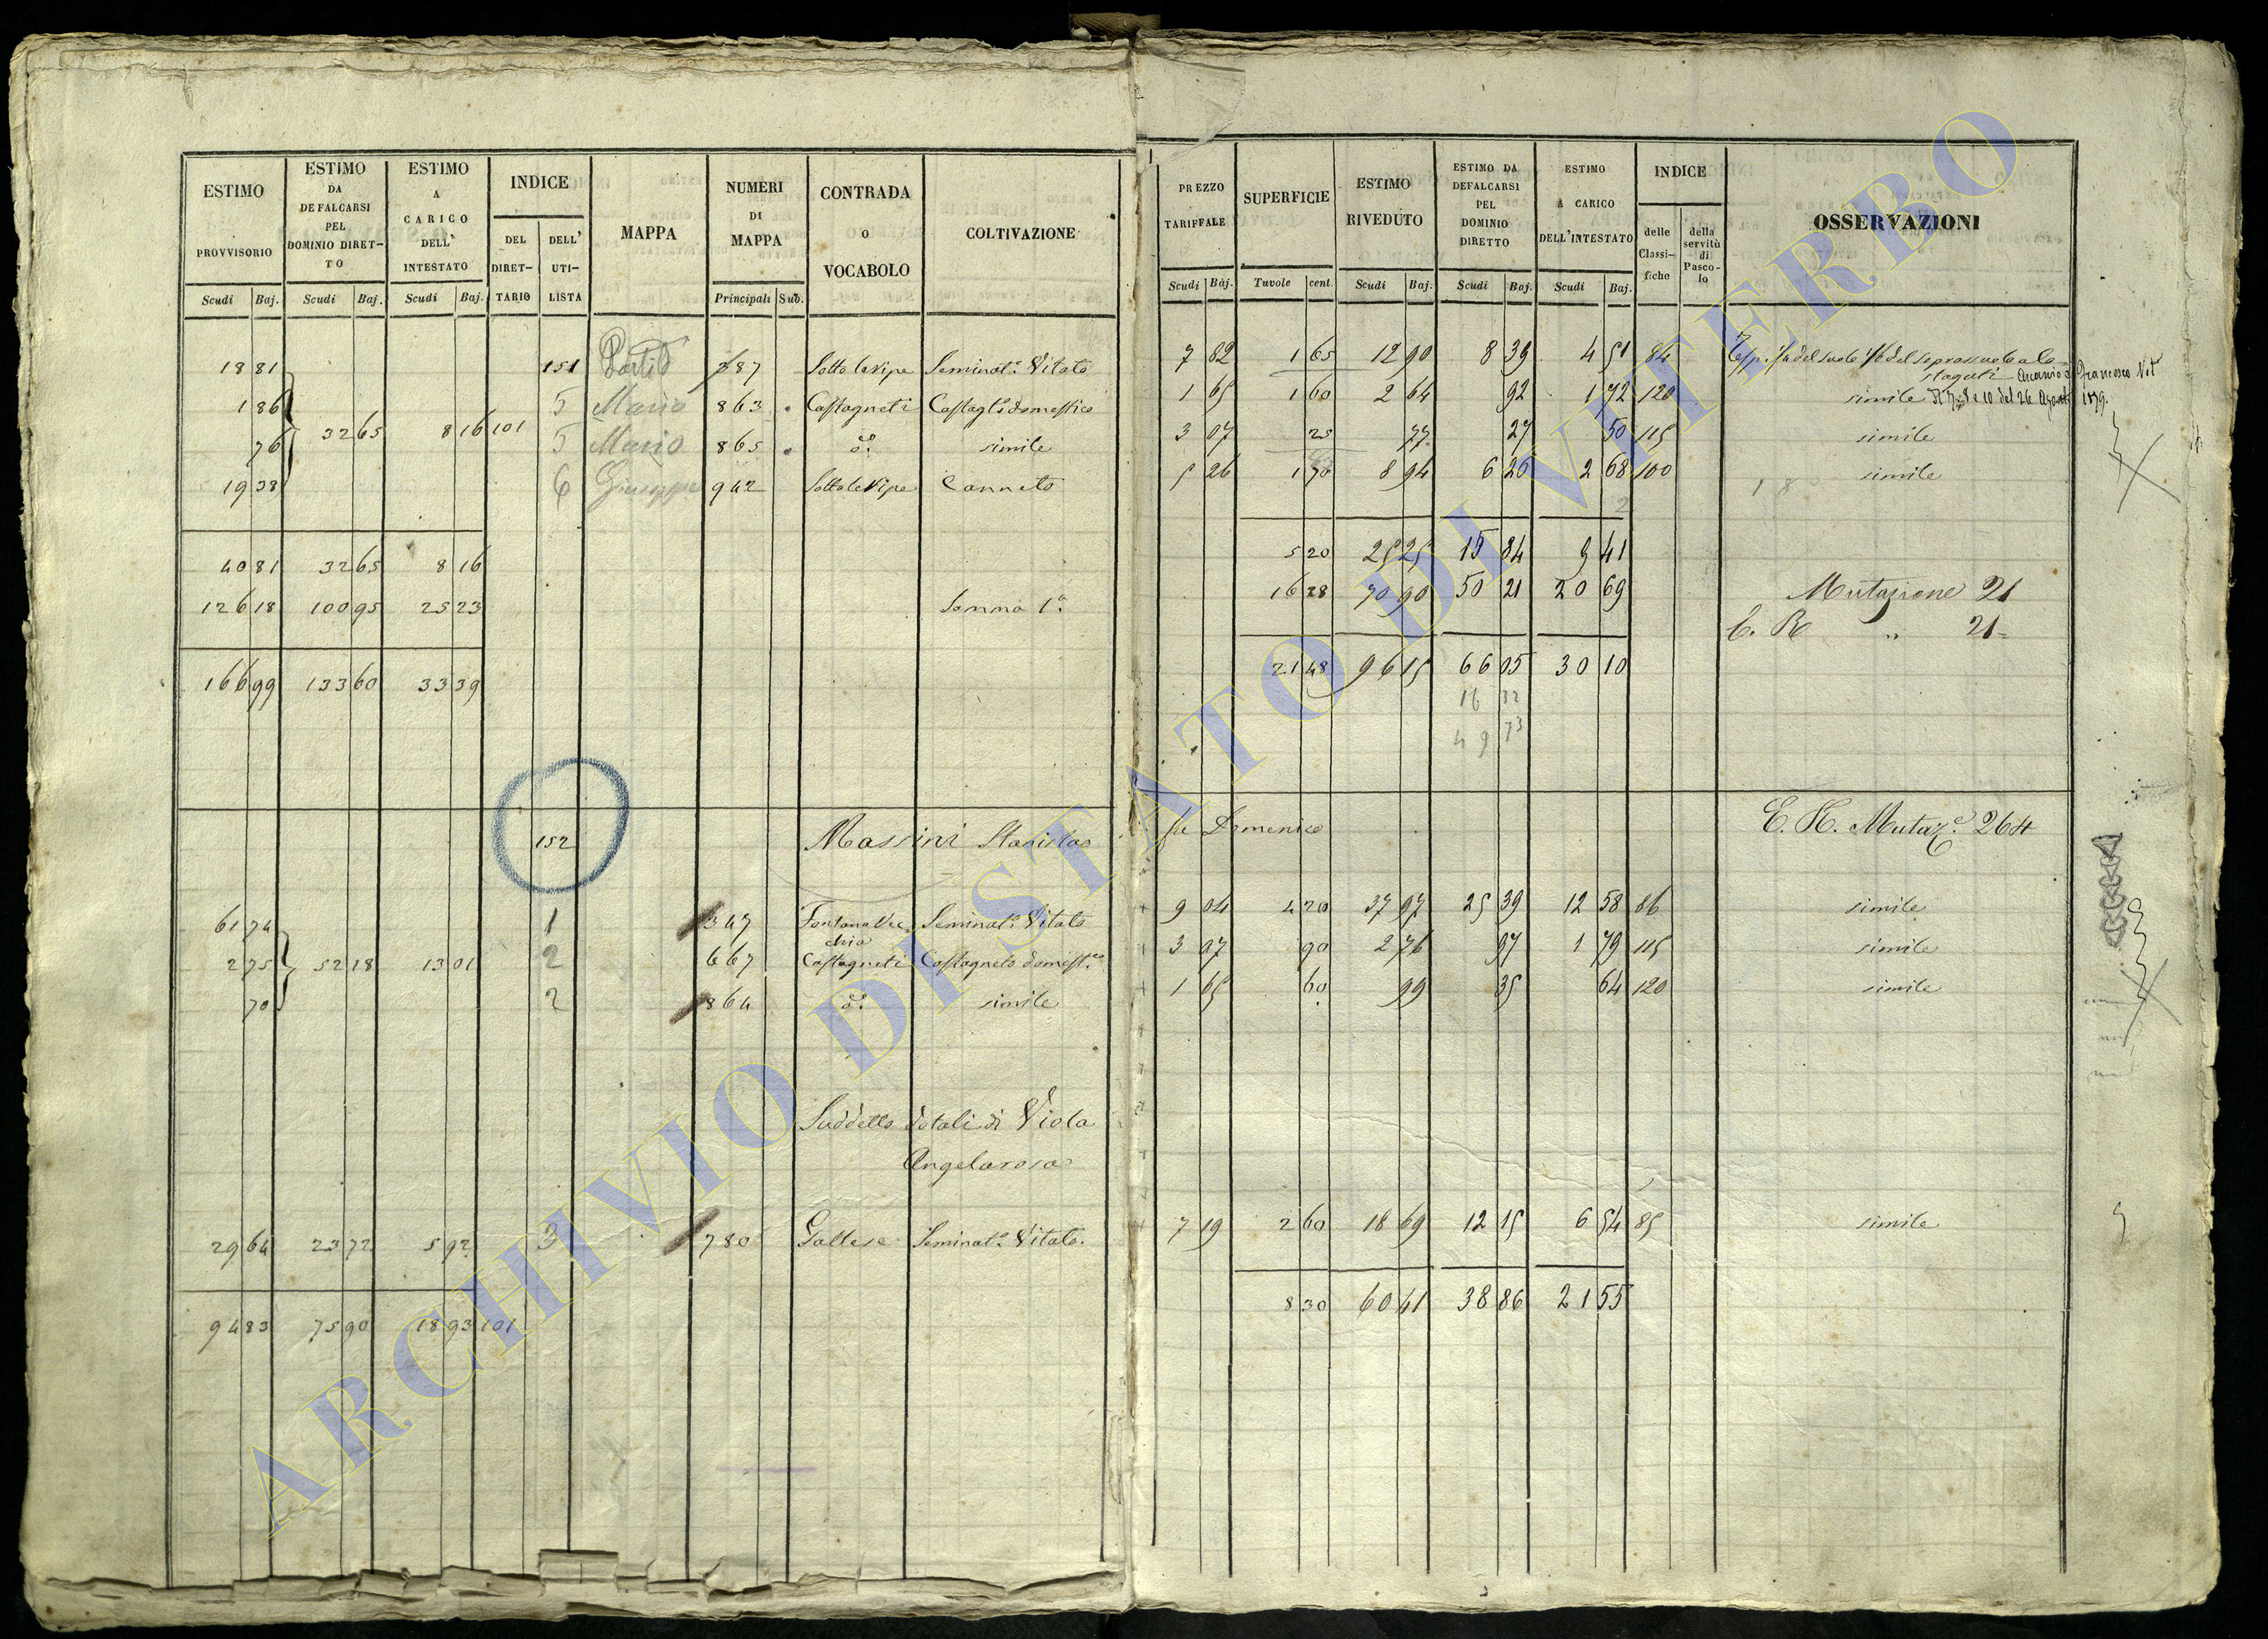 ESTIMO PROVVISORIO Scudi Baj.
ESTIMO DA DEFALCARSI PEL DOMINIO DIRET-TO Scudi Baj.
ESTIMO A CARICO DELL' INTESTATO Scudi Baj.
INDICE DEL DIRET-TARIO DELL' UTI-LISTA
MAPPA
NUMERI DI MAPPA Principali Sub.
CONTRADA O VOCABOLO
COLTIVAZIONE
PREZZO TARIFFALE Scudi Baj.
SUPERFICIE Tavole cent.
ESTIMO RIVEDUTO Scudi Baj.
ESTIMO DA DEFALCARSI PEL DOMINIO DIRETTO Scudi Baj.
ESTIMO A CARICO DELL'INTESTATO Scudi Baj.
INDICE delle Classi-fiche della servitù di Pasco-lo
OSSERVAZIONI
18 81 151 387 Sotto le ripe Seminat.º Vitato 7 82 1 65 12 90 8 39 4 51 84
1 86 5 Mario 863 Castagneti Castag.to domestico 1 65 1 60 2 64 92 1 72 120 simile
76 32 65 8 16 101 5 Mario 865 dº simile 3 07 25 77 27 50 115 simile
19 38 6 Giuseppe 942 Sotto le ripe Canneto 5 26 1 70 8 94 6 26 2 68 100 simile
40 81 32 65 8 16 5 20 25 25 15 84 9 41
126 18 100 95 25 23 Somma 1ª 16 28 70 90 50 21 20 69 Mutazione 21
C. R. " 21
166 99 133 60 33 39 21 48 96 15 66 05 30 10
16 32
49 73
152 Massini Stanislao fu Domenico E. R. Mutaz.e 264
61 74 1 347 Fontana Vecchia Seminat.º Vitato 9 04 4 20 37 97 25 39 12 58 86 simile
2 75 52 18 13 01 2 667 Castagneti Castagneto domest.co 3 07 90 2 76 97 1 79 115 simile
70 2 864 dº simile 1 65 60 99 35 64 120 simile
Suddetto dotali di Viola
Angelarosa
29 64 23 72 5 92 3 780 Gallese Seminat.º Vitato. 7 19 2 60 18 69 12 15 6 54 85 simile
94 83 75 90 18 93 101 8 30 60 41 38 86 21 55
ARCHIVIO DI STATO DI VITERBO